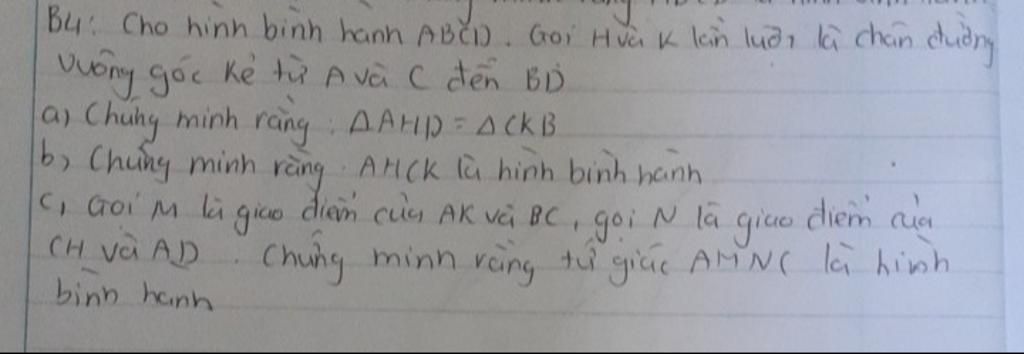 B4: Cho hình bình hành ABCD. Gọi H và K lần lượt là chân đường
vuông góc kẻ từ A và C đến BD
a, Chứng minh rằng: ΔAHD = ΔCKB
b, Chứng minh rằng. AHCK là hình bình hành
c, Gọi M là giao điểm của AK và BC, gọi N là giao điểm của
CH và AD. Chứng minh rằng tứ giác AMNC là hình
bình hành